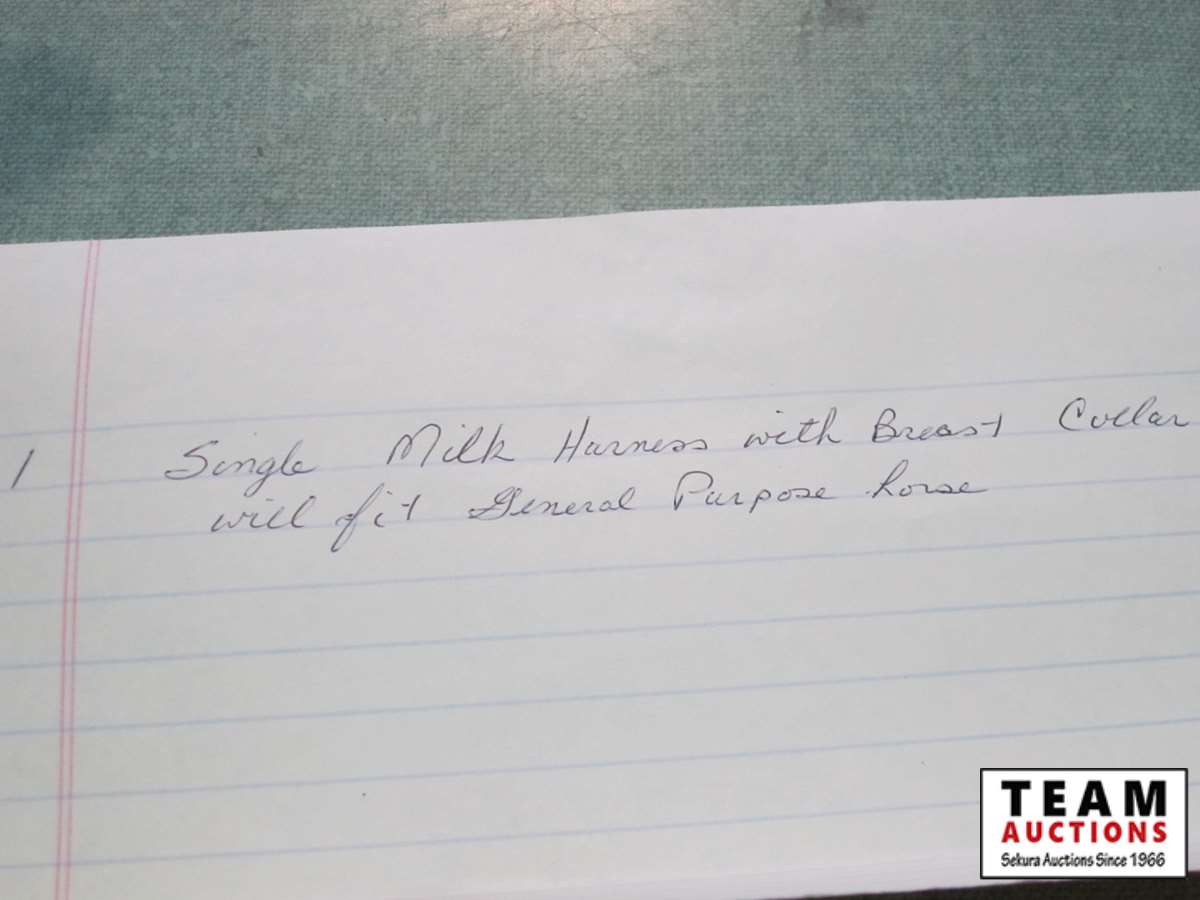 1 Single Milk Harness with Breast Collar
will fit General Purpose horse
TEAM
AUCTIONS
Sekura Auctions Since 1966